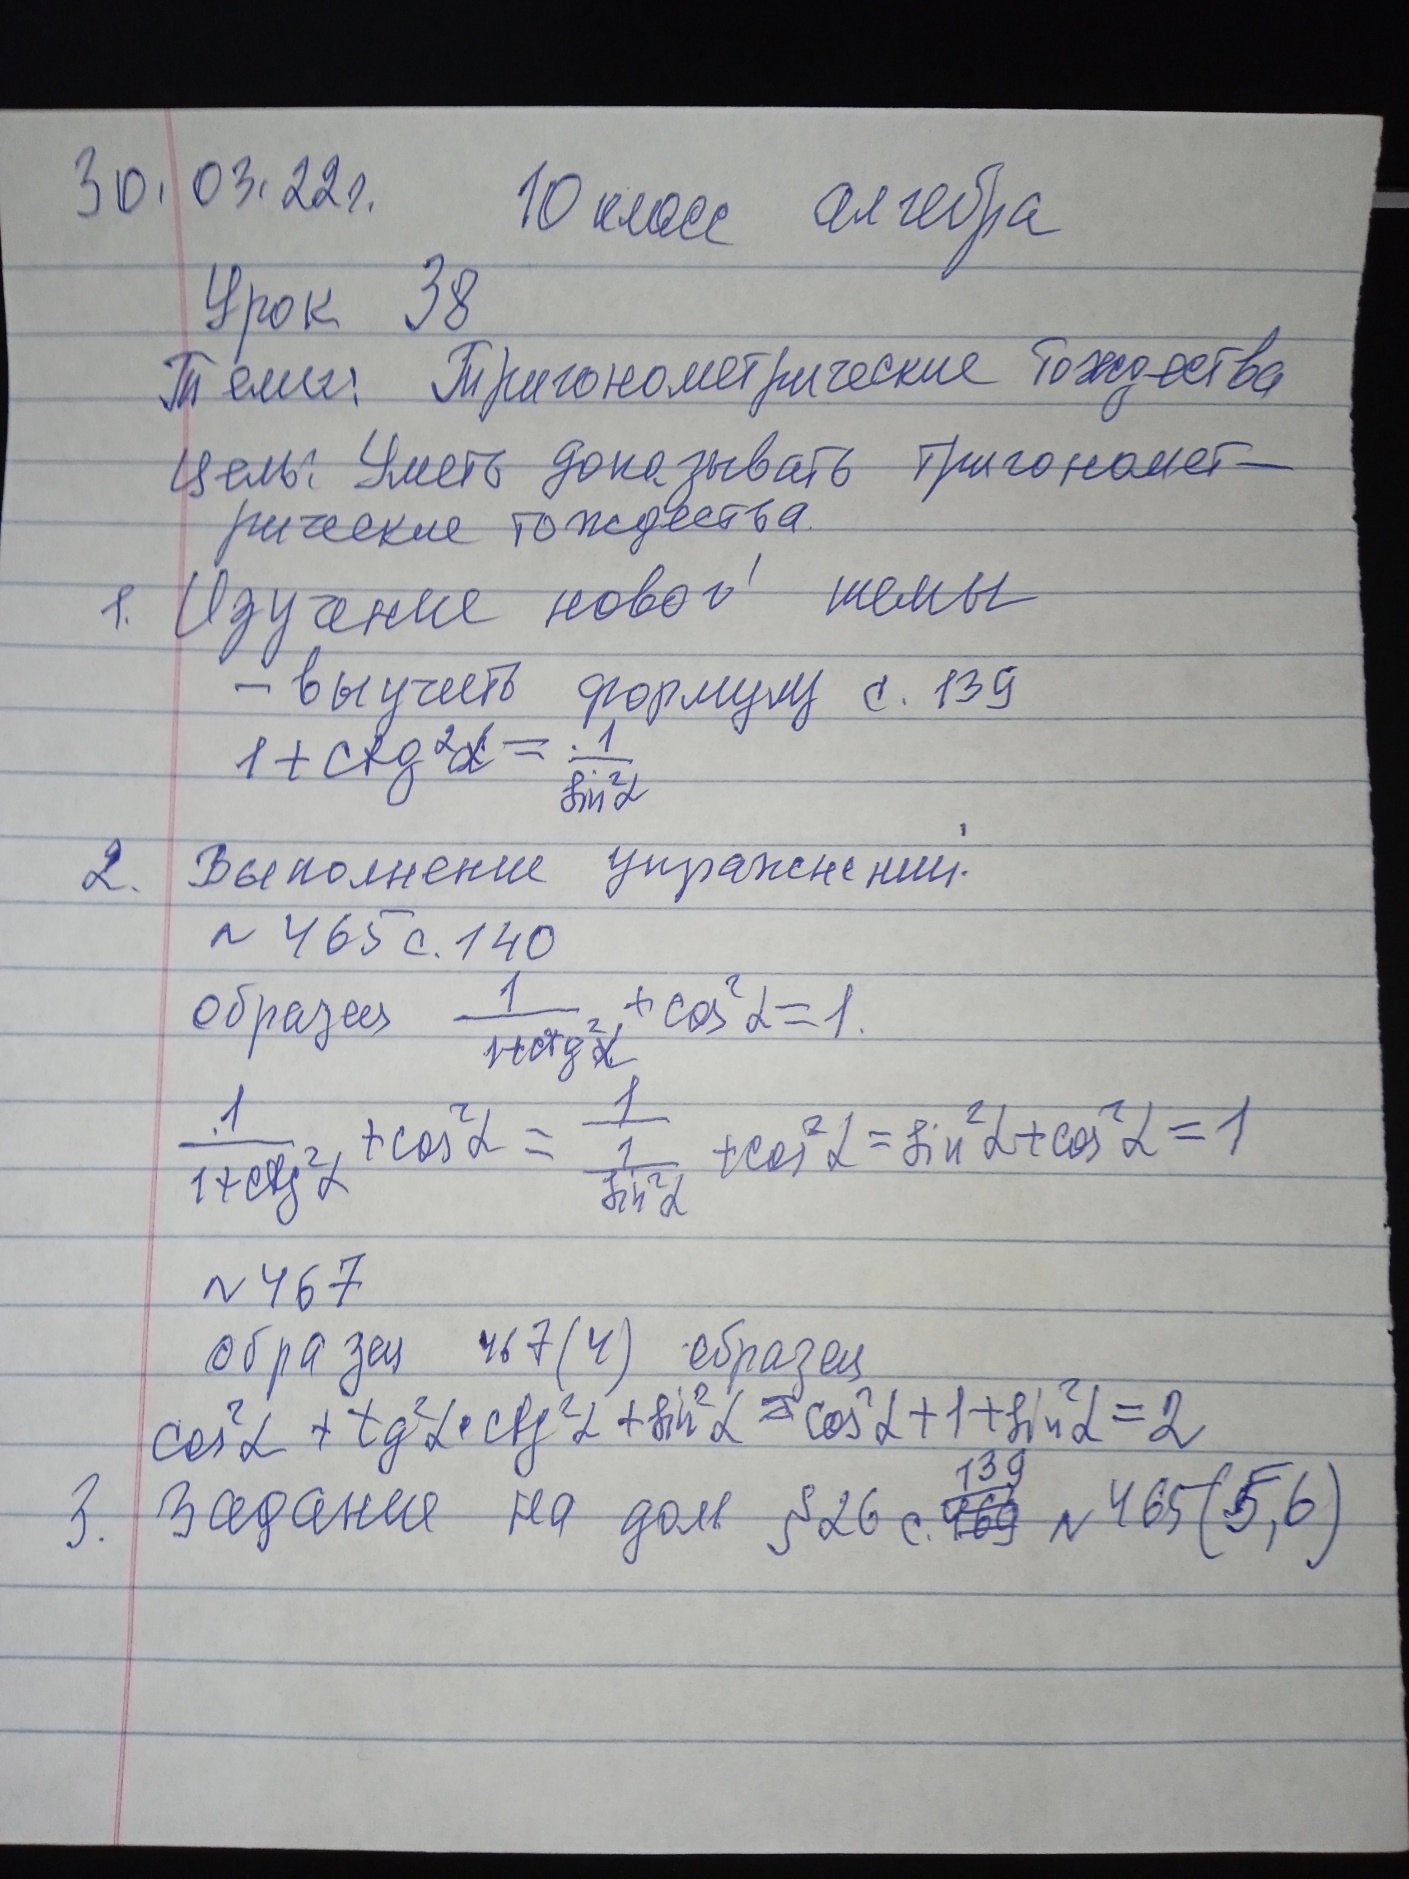 30.03.22г. 10 класс алгебра
Урок 38
Тема: Тригонометрические тождества
Цель: Уметь доказывать тригономет-
рические тождества.
1. Изучение новой темы
- выучить формулу с. 139
1 + ctg²α = 1/sin²α
2. Выполнение упражнений.
~ 465 с. 140
образец 1/(1+ctg²α) + cos²α = 1.
1/(1+ctg²α) + cos²α = 1/(1/sin²α) + cos²α = sin²α + cos²α = 1
~ 467
образец 467(4) образец
cos²α + tg²α · ctg²α + sin²α = cos²α + 1 + sin²α = 2
3. Задание на дом §26 с. 139 ~ 465(5,6)